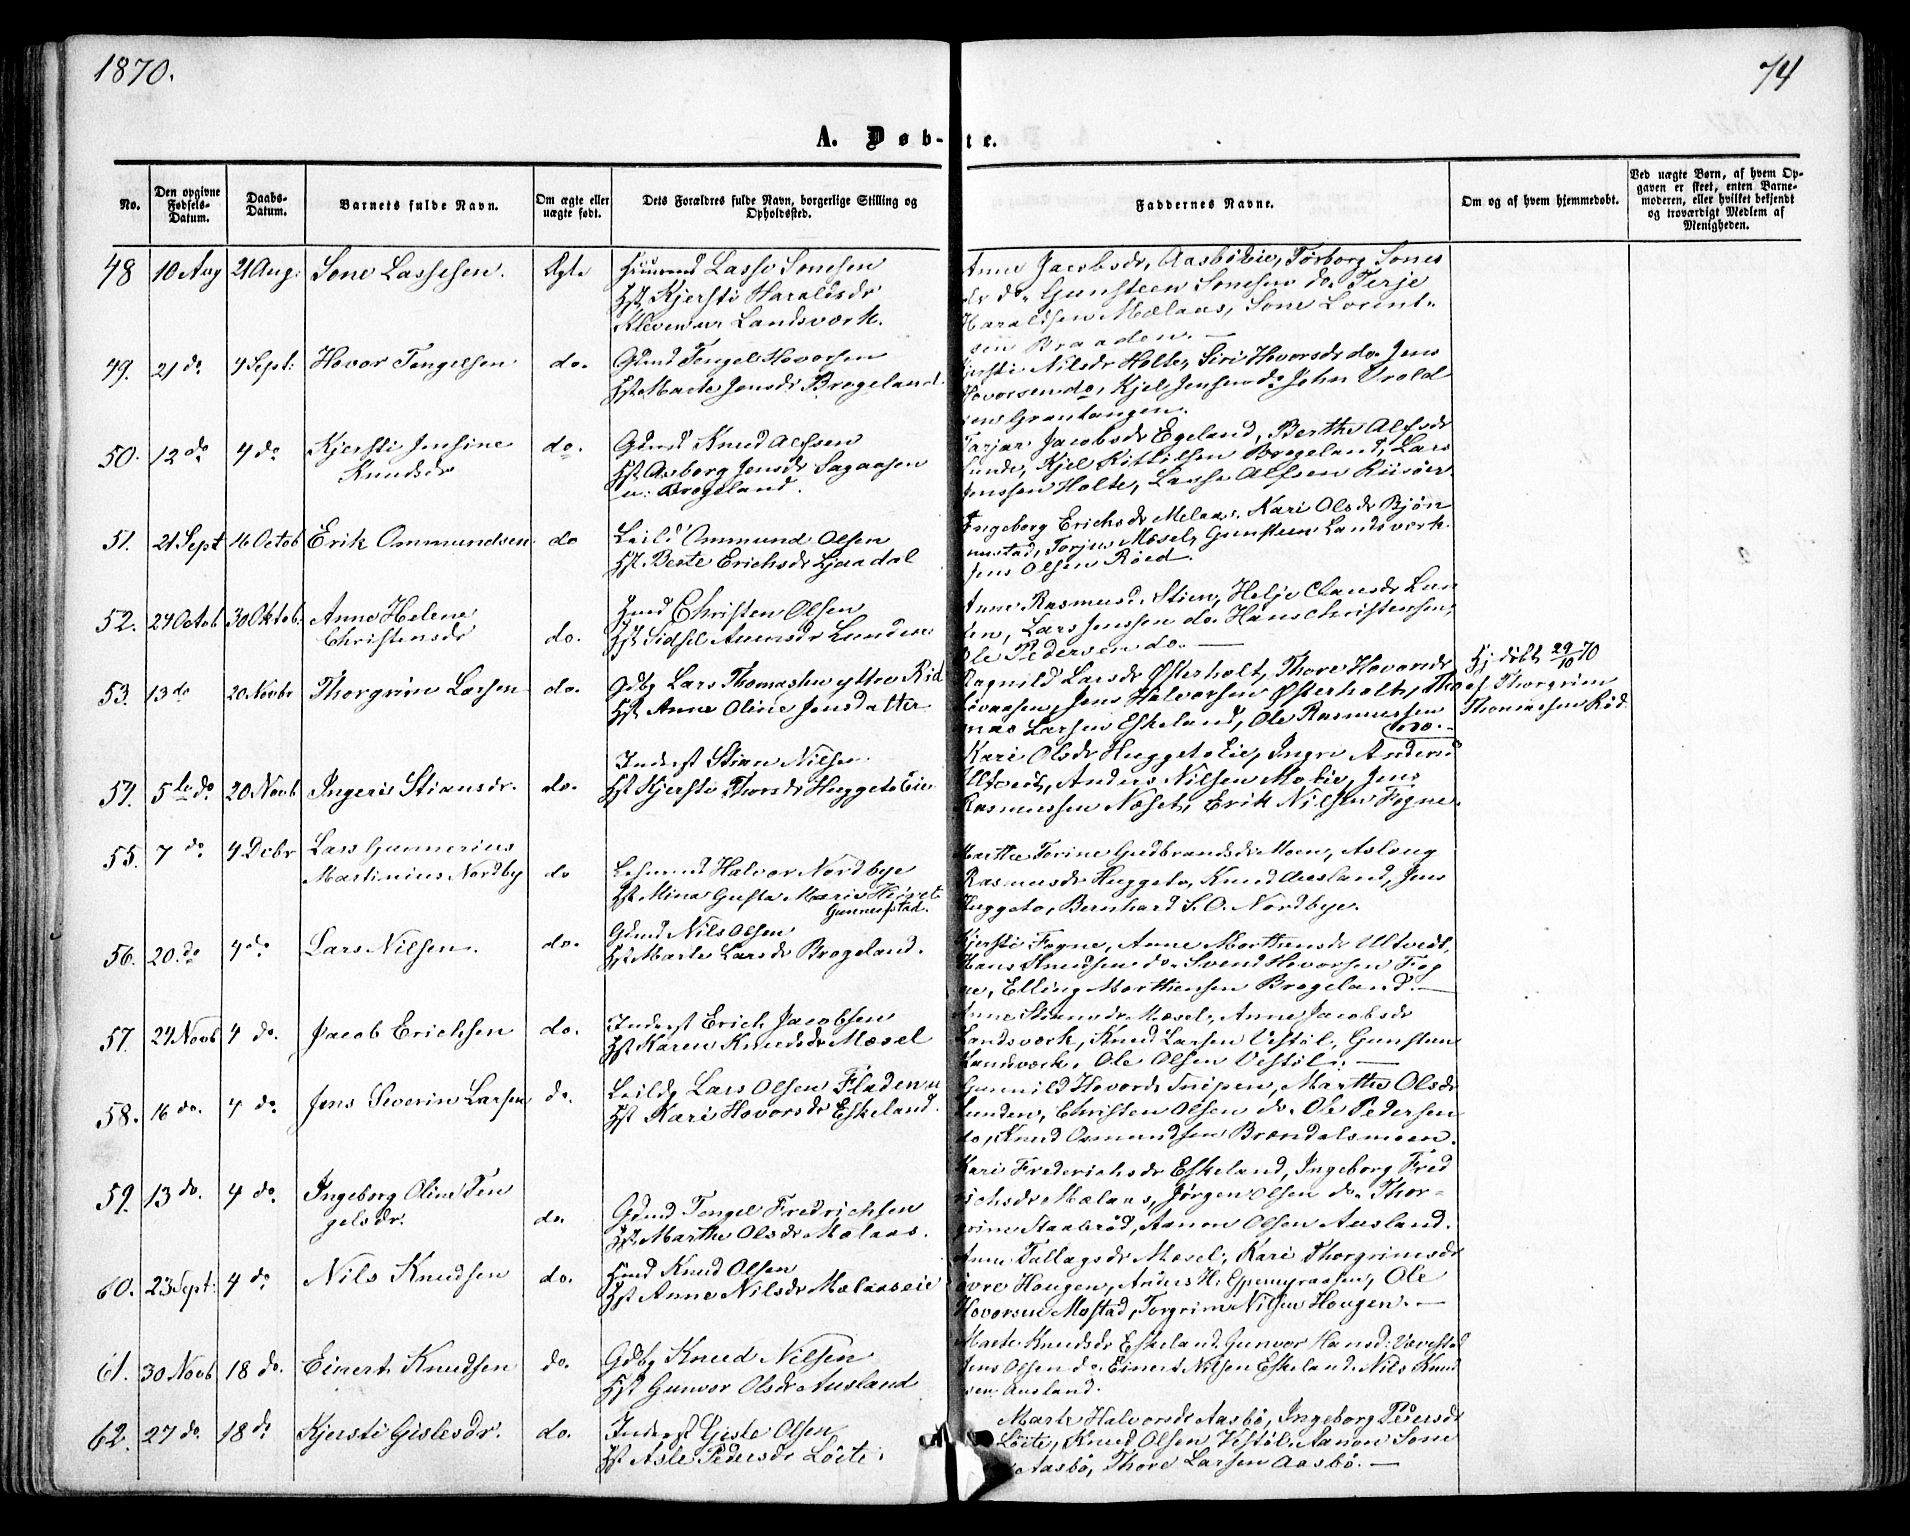 1870.
74
A. Døb-te.
No.
Den opgivne Fødsels-Datum.
Daabs-Datum.
Barnets fulde Navn.
Om ægte eller uægte født.
Dets Forældres fulde Navn, borgerlige Stilling og Opholdssted.
Faddernes Navne.
Om og af hvem hjemmedøbt.
Ved uægte Børn, af hvem Opgaven er skeet, enten Barnemoderen, eller hvilket bekjendt og troværdigt Medlem af Menigheden.
48 10 Aug 21 Aug: Sone Lassesen. Ægte Lasse Sonesen
Hst Kjersti Haraldsdr
Landsværk.
Anne Jacobsdr, Aasbø Torborg Sones
dr do. Gunsteen Sonesen do. Terje
Haraldsen Mælaas, Sone Lorent-
sen Braaden. —
49. 21 do 4 Sept: Hovor Tengelsen do. Gdmd Tengel Hovorsen
Hst Marte Jensdr Brogeland
Kjersti Nilsdr Holte, Siri Hovorsdr do. Jens
Hovorsen do, Kjel Jensen do John Vrold
sen Grantangen.
50. 12 do 4 do Kjersti Jensine
Knudsdr
do. Gdmd Knud Alfsen
Hst Aasborg Jensdr Sagaasen
u: Brogeland.
Tarjer Jacobsdr Egeland, Berthe Alfsdr
Sunde, Kjel Kittilsen Brogeland, Lars
Jenssen Holte, Lasse Alfsen Riisøer
51. 21 Sept 16 Octob Erik Ommundsen do Leild Ommund Olsen
Hst. Berte Erichsdr Ljaadal
Ingeborg Erichsdr Mælaas. Kari Olsdr Bjøn
nustad, Torjus Mæsel, Gunsteen Landsværk.
Jens Olsen Røed
52. 24 Octob 30 Oktob. Anne Helene
Christensdr
do. Hmd Christen Olsen
Hst Sidsel Lunden
Anne Rasmusd. Stien, Helje Clausdr Lun
den, Lars Jenssen do. Hans Christensen,
Ole Pedersen do. —
53. 13 do 20. Novbr Thorgrim Larsen do. Gdbg Lars Thomassen yttre Rød
Hst Anne Oline Jensdatter
Ragnild Larsdr Østerholt, Thore Hovorsdr
Jens Halvorsen Østerholt, Tho
mas Larsen Eskeland, Ole Rasmussen
Hj. døbt 29/10 70
af Thorgrim
Thomassen Rød.
54. 5te do 20. Novb Ingeri Stiansdr. do. Inderst Stian Nilsen
Hst Kjersti Thorsdr Huggeto Eie
Kari Olsdr Huggeto Eie, Ingri Andersd
Ulltvedt, Anders Nilsen Molie, Jens
Rasmussen Næset, Erik Nilsen Fogne.
55. 7 do 4 Debr Lars Gunnerius
Martinius Nordby do Halvor Nordbye
Hst Mina Gusta Marie
Gunnufstad.
Marthe Torine Gudbrandsdr Moen, Aslaug
Rasmusdr Huggeto, Knud Ausland, Jens
Huggeto, Bernhard S. O. Nordbye.
56. 20. do 4 do Lars Nilsen. do. Gdmd Nils Olsen
Hst Marte Larsdr Brogeland.
Kjersti Fogne, Anne Morthensdr Ulltvedt,
Hans Knudsen do. Svend Hovorsen Fog
ne, Elling Morthensen Brogeland. —
57. 24 Novb 4 do. Jacob Erichsen do. Inderst Erich Jacobsen
Hst Karen Knudsdr Mæsel
Anne Stiansdr Mæsel, Anne Jacobsdr
Landsværk, Knud Larsen Vestøl, Gunsten
Landsværk, Ole Olsen Vestøl. —
58. 16 do. 4 do. Jens Severin Larsen do. Leild Lars Olsen Fladen u
Hst Kari Hovorsdr Eskeland.
Gunnild Hovordr Snipen, Marthe Olsdr
Lunden, Christen Olsen do. Ole Pedersen
do, Knud Osmundsen Brøndalsmoen.
59. 13 do. 4 do. Ingeborg Oline Ten
gelsdr.
do. Gdmd Tengel Fredrichsen
Hst Marthe Olsdr Mælaas.
Kari Frederichsdr Eskeland, Ingeborg Fred
richsdr Mælaas, Jørgen Olsen do. Thor-
grim Staalerød, Aanon Olsen Ausland.
60. 23 Sept: 4 do Nils Knudsen do. Hmd Knud Olsen
Hst Anne Nilsdr Mælaaseie
Anne Tallagsdr Mæsel, Kari Thorgrimsdr
øvre Hougen, Anders H. Espemyraasen, Ole
Hovorsen Mostad, Torgrim Nilsen Hougen. —
61. 30 Novb 18 do. Einert Knudsen do. Gdbg Knud Nilsen
Hst Gunvor Olsdr Ausland
Marte Knudsdr Eskeland. Gunvor Hansd: Værestad
Jens Olsen do. Einert Nilsen Eskeland. Nils Knud
sen Ausland.
62. 27 do. 18 do Kjersti Gislesdr. do. Inderst Gisle Olsen
Hst Asle Pedersdr Løite.
Marte Halvorsdr Aasbø, Ingeborg Pedersdr
Løite, Knud Olsen Vestøl. Aanon Sone
Aasbø, Thore Larsen Aasbø. —